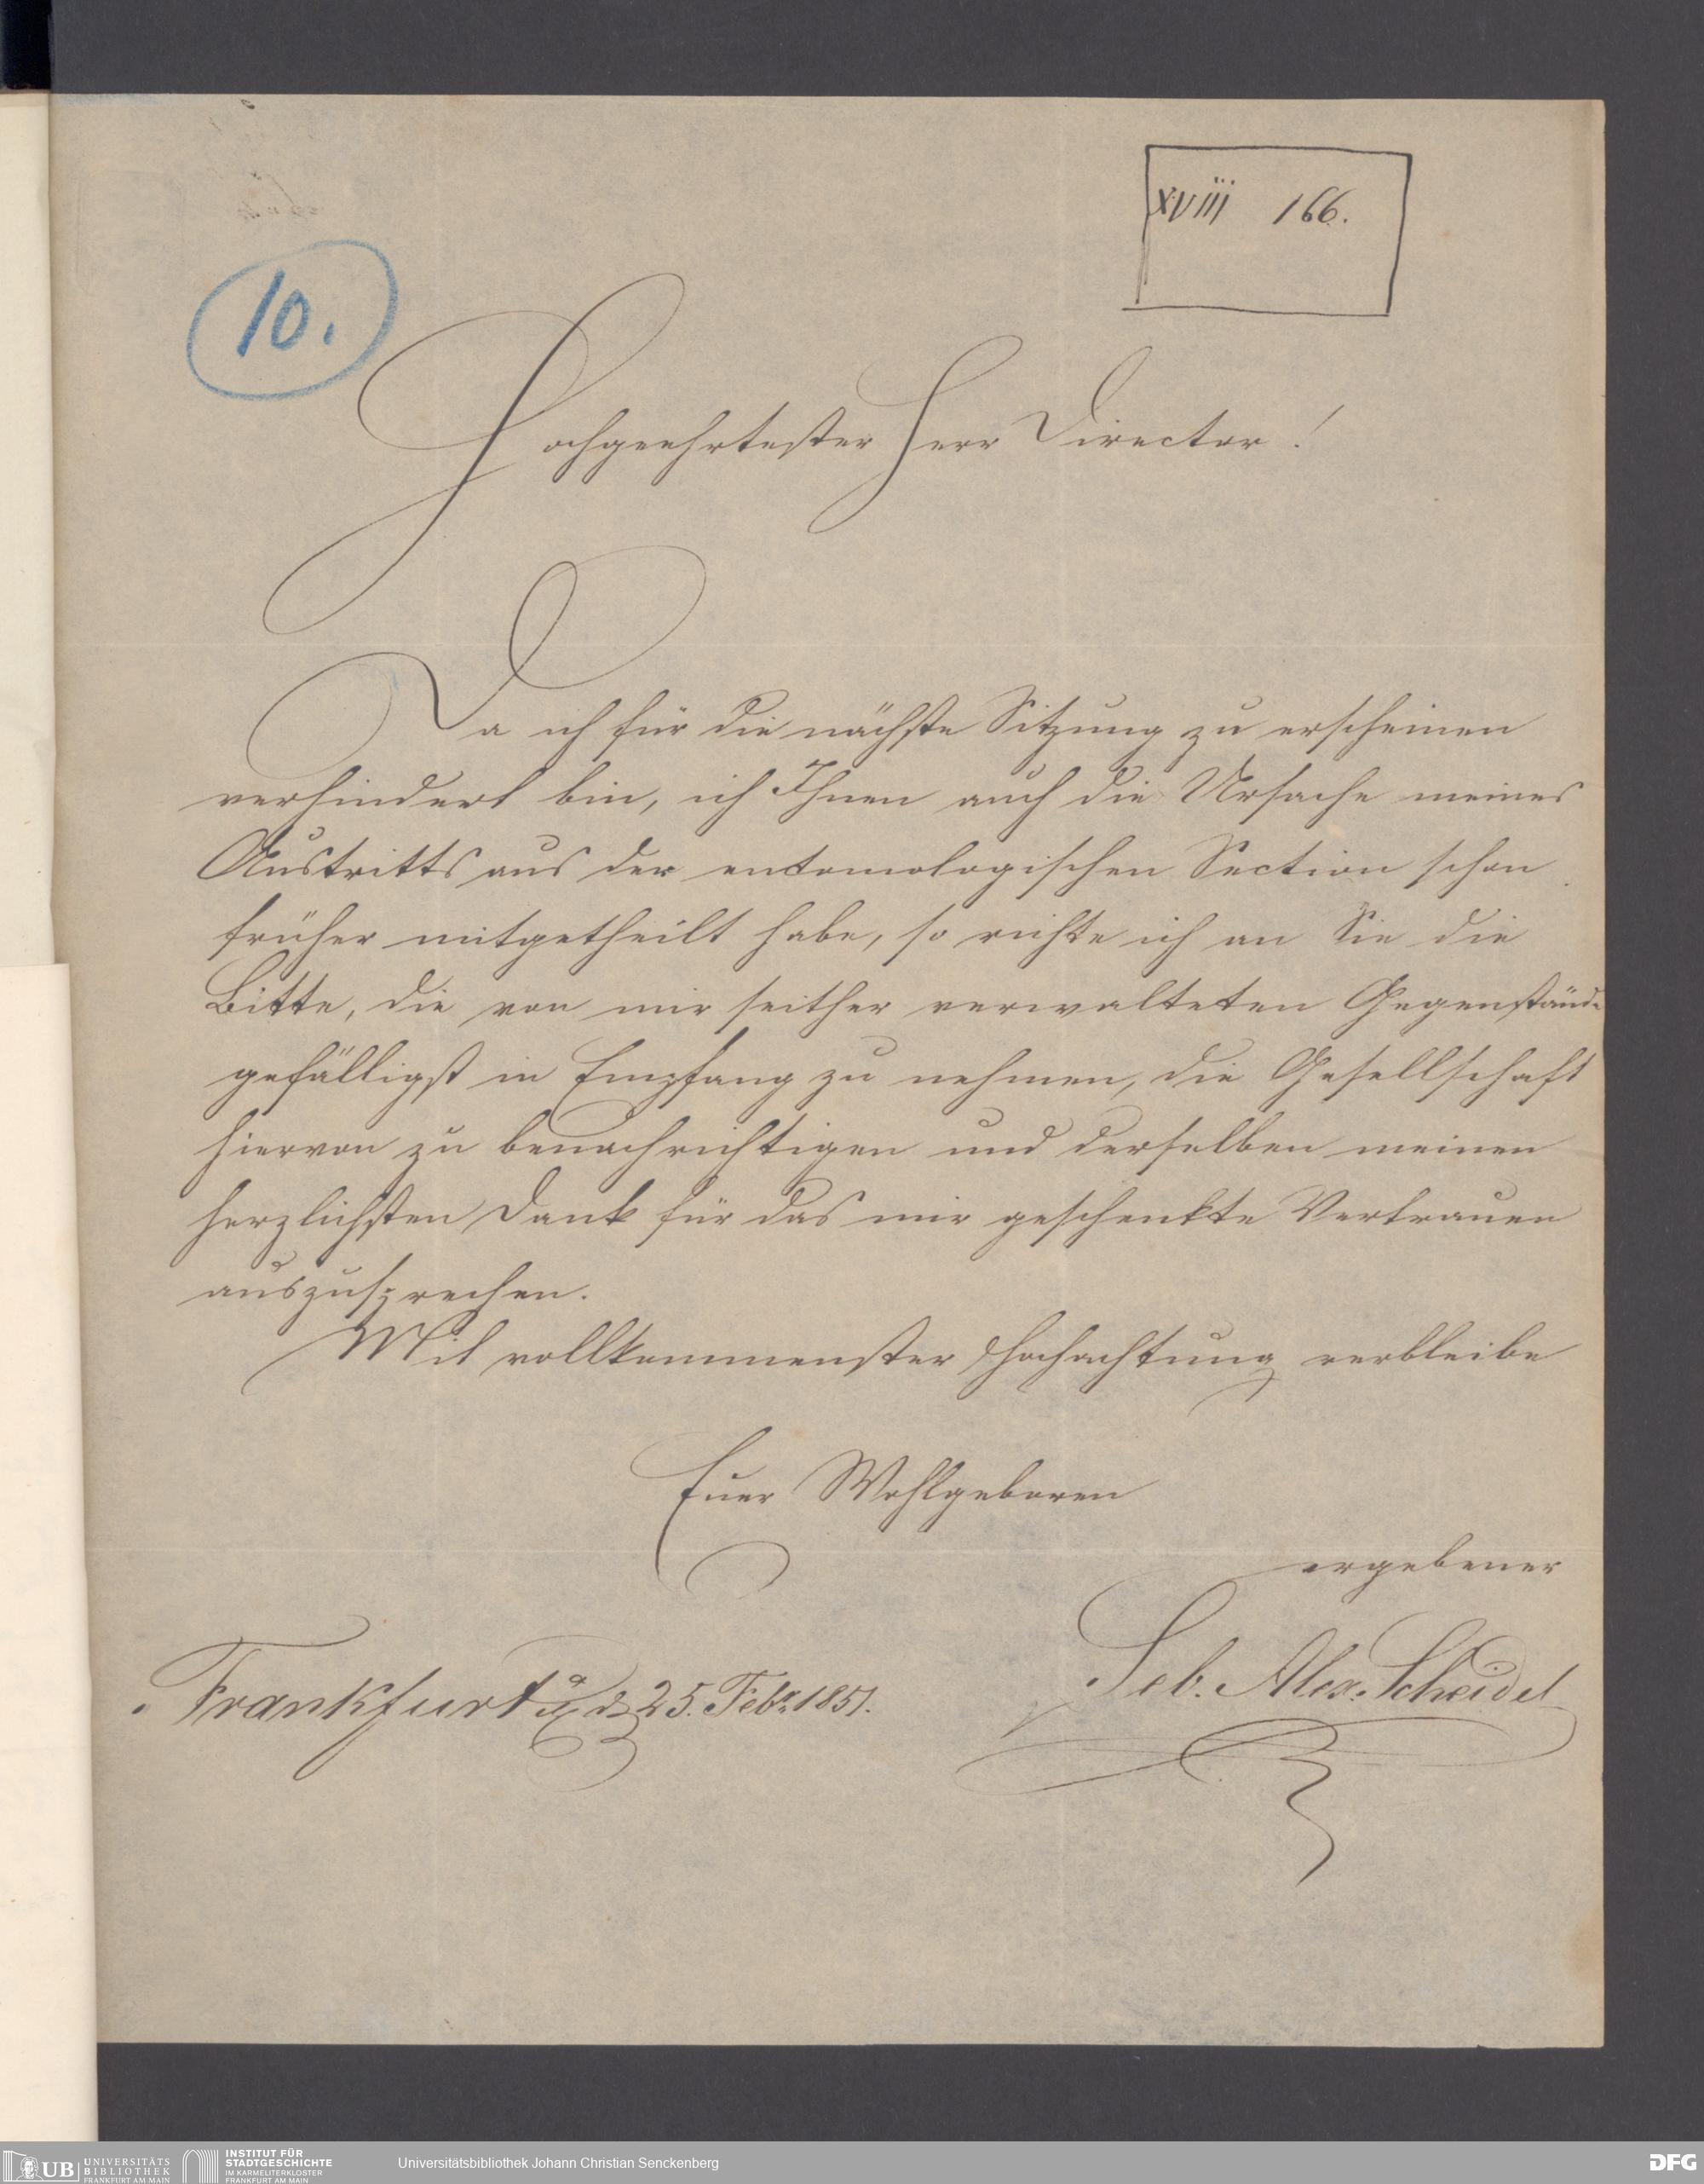 XVIII 166.
10.
Hochgeehrtester Herr Director!
Da ich für die nächste Sitzung zu erscheinen
verhindert bin, ich Ihnen auch die Ursache meines
Austritts aus der entomologischen Section schon
früher mitgetheilt habe, so richte ich an Sie die
Bitte, die von mir seither verwalteten Gegenstände
gefälligst in Empfang zu nehmen, die Gesellschaft
hiervon zu benachrichtigen und derselben meinen
herzlichsten Dank für das mir geschenkte Vertrauen
auszusprechen.
Mit vollkommenster Hochachtung verbleibe
Euer Wohlgeboren
ergebener
Seb. Alex. Scheidel
Frankfurt a/M d. 25. Febr. 1851.
UB UNIVERSITÄTS
BIBLIOTHEK
FRANKFURT AM MAIN
INSTITUT FÜR
STADTGESCHICHTE
IM KARMELITERKLOSTER
FRANKFURT AM MAIN
Universitätsbibliothek Johann Christian Senckenberg
DFG